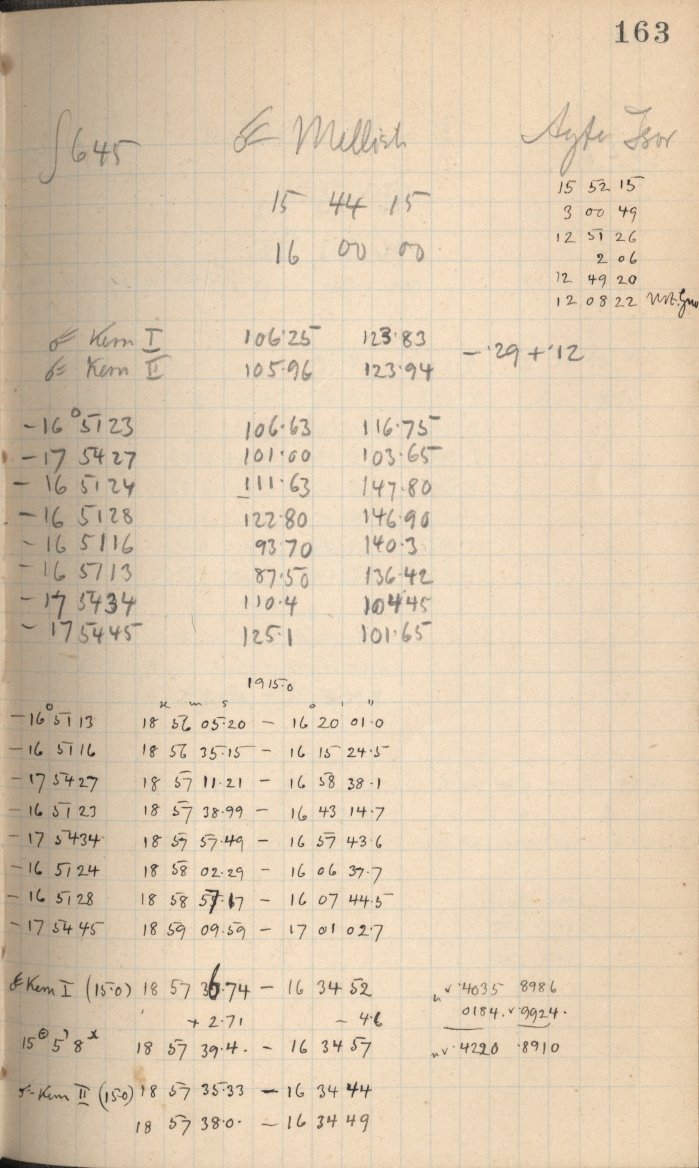 163
∫645 ☄ Mellish
15 44 15
16 00 00
15 52 15
3 00 49
12 51 26
2 06
12 49 20
12 08 22
☄ Kem I 106·25 123·83
☄ Kem II 105·96 123·94 - ·29 + ·12
-16° 5123 106·63 116·75
-17 5427 101·00 103·65
-16 5124 111·63 147·80
-16 5128 122·80 146·90
-16 5116 93·70 140·3
-16 5113 87·50 136·42
-17 5434 110·4 104·45
-17 5445 125·1 101·65
1915·0
h m s ° ' "
-16° 5113 18 56 05·20 - 16 20 01·0
-16 5116 18 56 35·15 - 16 15 24·5
-17 5427 18 57 11·21 - 16 58 38·1
-16 5123 18 57 38·99 - 16 43 14·7
-17 5434 18 57 57·49 - 16 57 43·6
-16 5124 18 58 02·29 - 16 06 37·7
-16 5128 18 58 57·17 - 16 07 44·5
-17 5445 18 59 09·59 - 17 01 02·7
☄ Kem I (15·0) 18 57 36·74 - 16 34 52 ·4035 8986
+ 2·71 - 4·6 0184. 9924.
18 57 39·4. - 16 34 57 ·4220 ·8910
☄ Kem II (15·0) 18 57 35·33 - 16 34 44
18 57 38·0· - 16 34 49